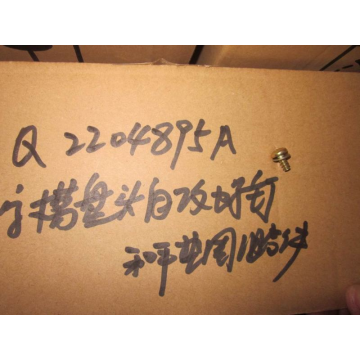 Q 2204895A
字槽盘头自攻螺钉
和平垫圈组合件